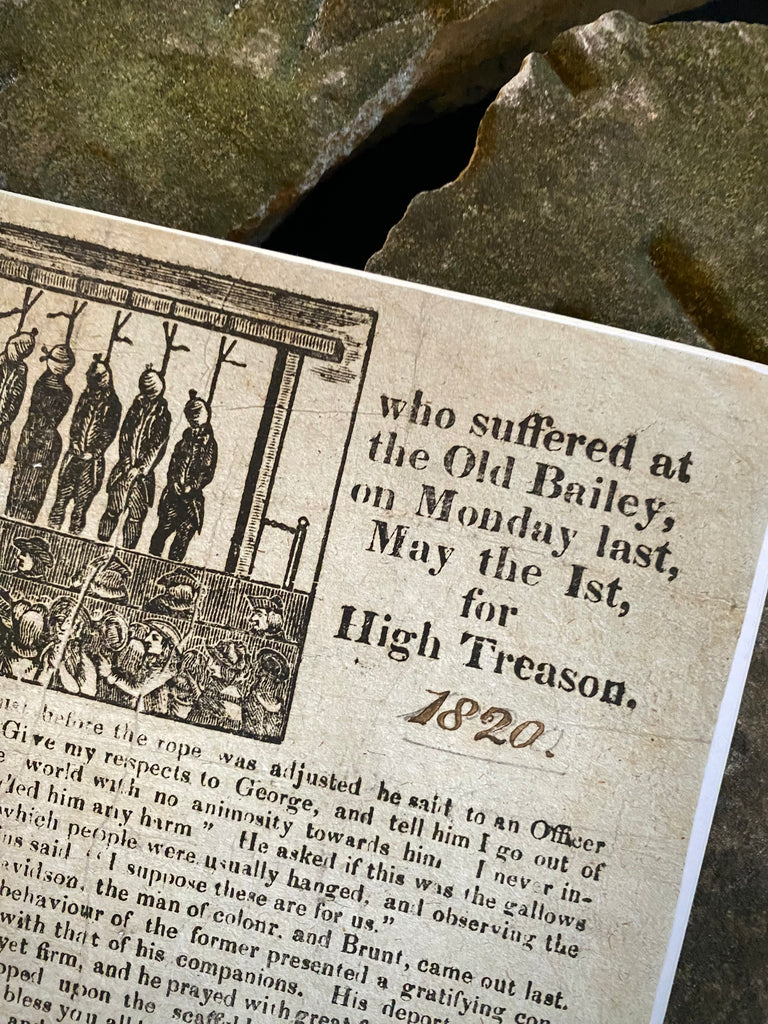 who suffered at
the Old Bailey,
on Monday last,
May the 1st,
for
High Treason.
1820.
before the rope was adjusted he said to an Officer
Give my respects to George, and tell him I go out of
world with no animosity towards him I never in-
led him any harm" He asked if this was the gallows
which people were usually hanged, and observing the
ns said "I suppose these are for us."
avidson, the man of colour, and Brunt, came out last.
behaviour of the former presented a gratifying con
with that of his companions. His deport
yet firm, and he prayed with great
pped upon the scaff
bless you all